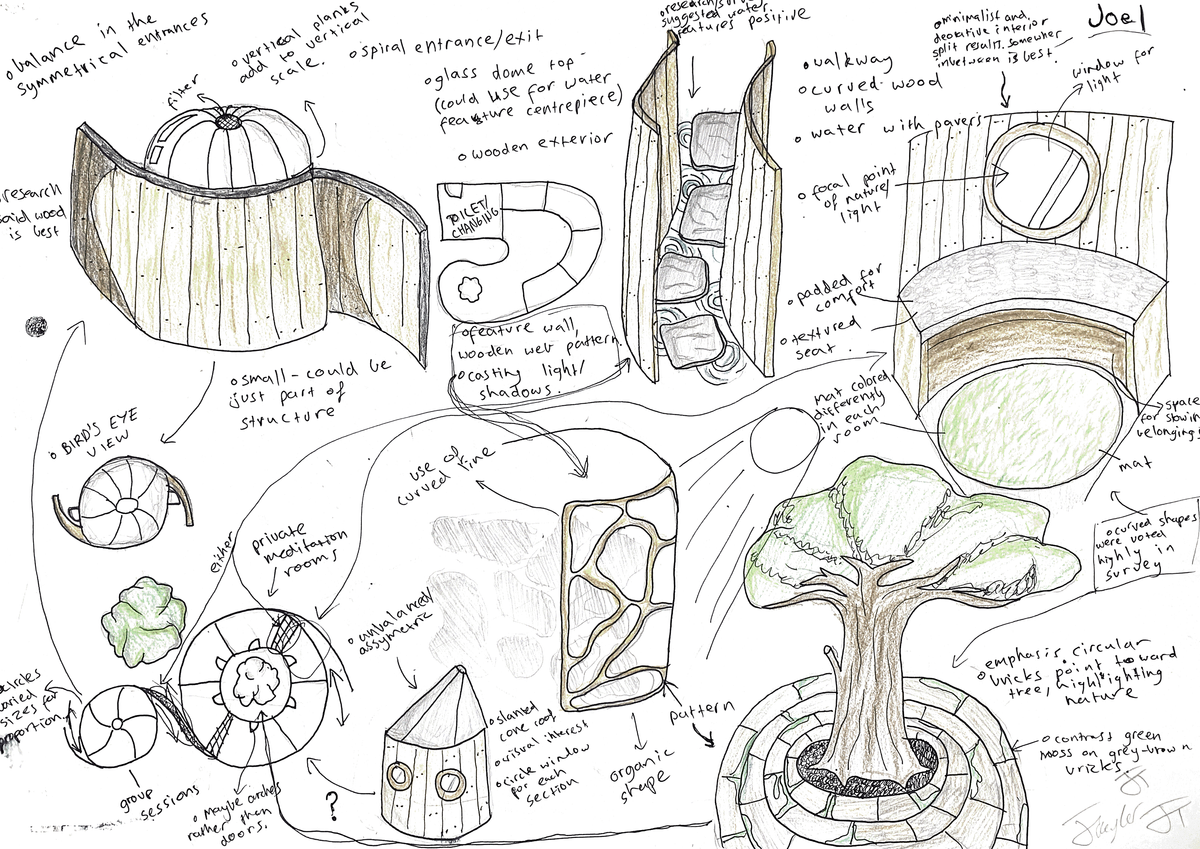 o balance in the
symmetrical entrances
filter
o vertical planks
add to vertical
scale.
o spiral entrance/exit
o glass dome top -
(could use for water
feature centrepiece)
o wooden exterior
suggested water
features positive
o walkway
o curved wood
walls
o water with pavers
o minimalist and
decorative interior
split results. somewher
inbetween is best.
Joel
window for
light
o focal point
of nature/
light
research
said wood
is best
TOILET/
CHANGING
o padded for
comfort
o textured
seat
o feature wall,
wooden web pattern.
o casting light/
shadows.
o small - could be
just part of
structure
o BIRD'S EYE
VIEW
mat colored
differently
in each
room
space
for stowing
belongings
mat
use of
curved line
o curved shapes
were voted
highly in
survey
either
private
meditation
rooms
o unbalanced/
assymetric
o emphasis, circular
o bricks point toward
tree, highlighting
nature
circles
varied
sizes for
proportion.
o slanted
cone roof
o visual interest
o circle window
for each
section
pattern
organic
shape
o contrast green
moss on grey-brown
bricks
group
sessions
o Maybe arches
rather than
doors.
?
JT